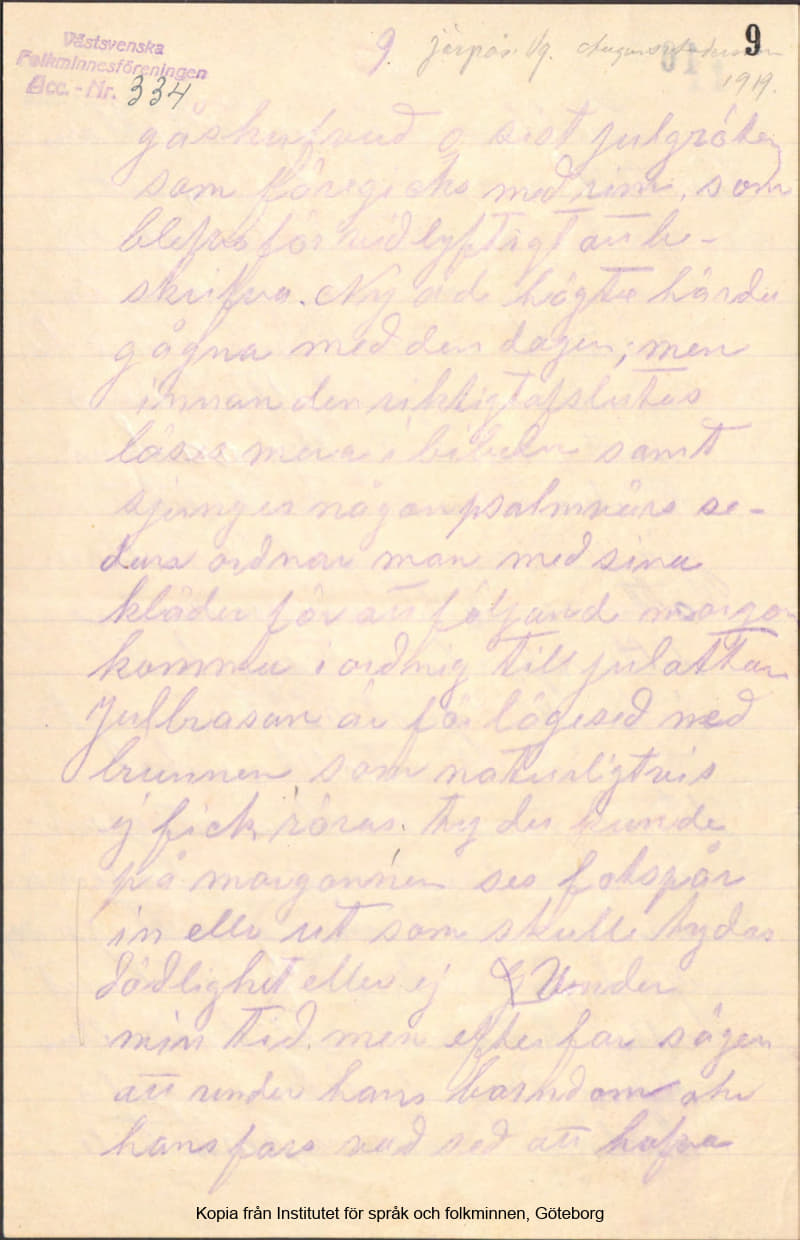 Västsvenska
Folkminnesföreningen
Acc. - Nr. 334
9. Järpås. Vg.
9
1919.
gåshufvud o sist julgröten
som föregicks med rim, som
blefve för vidlyftigt att be-
skrifva. Ny ved högtve härdu
gågna med den dagen; men
innan den riktigt afslutas
läses mera i bibeln samt
sjunges någon psalmvärs se-
dan ordnar man med sina
kläder för att följand morgon
komma i ordnig till julottan
Julbrasan är för lägesed ned
brunnen som naturligtvis
ej fick röras. ty der kunde
på morgonnen ses fotspår
in eller ut som skulle tydas
dödlighet eller ej Under
min tid. men efter far sägen
att under hans barndom och
hans fars vad sed att hafva
Kopia från Institutet för språk och folkminnen, Göteborg